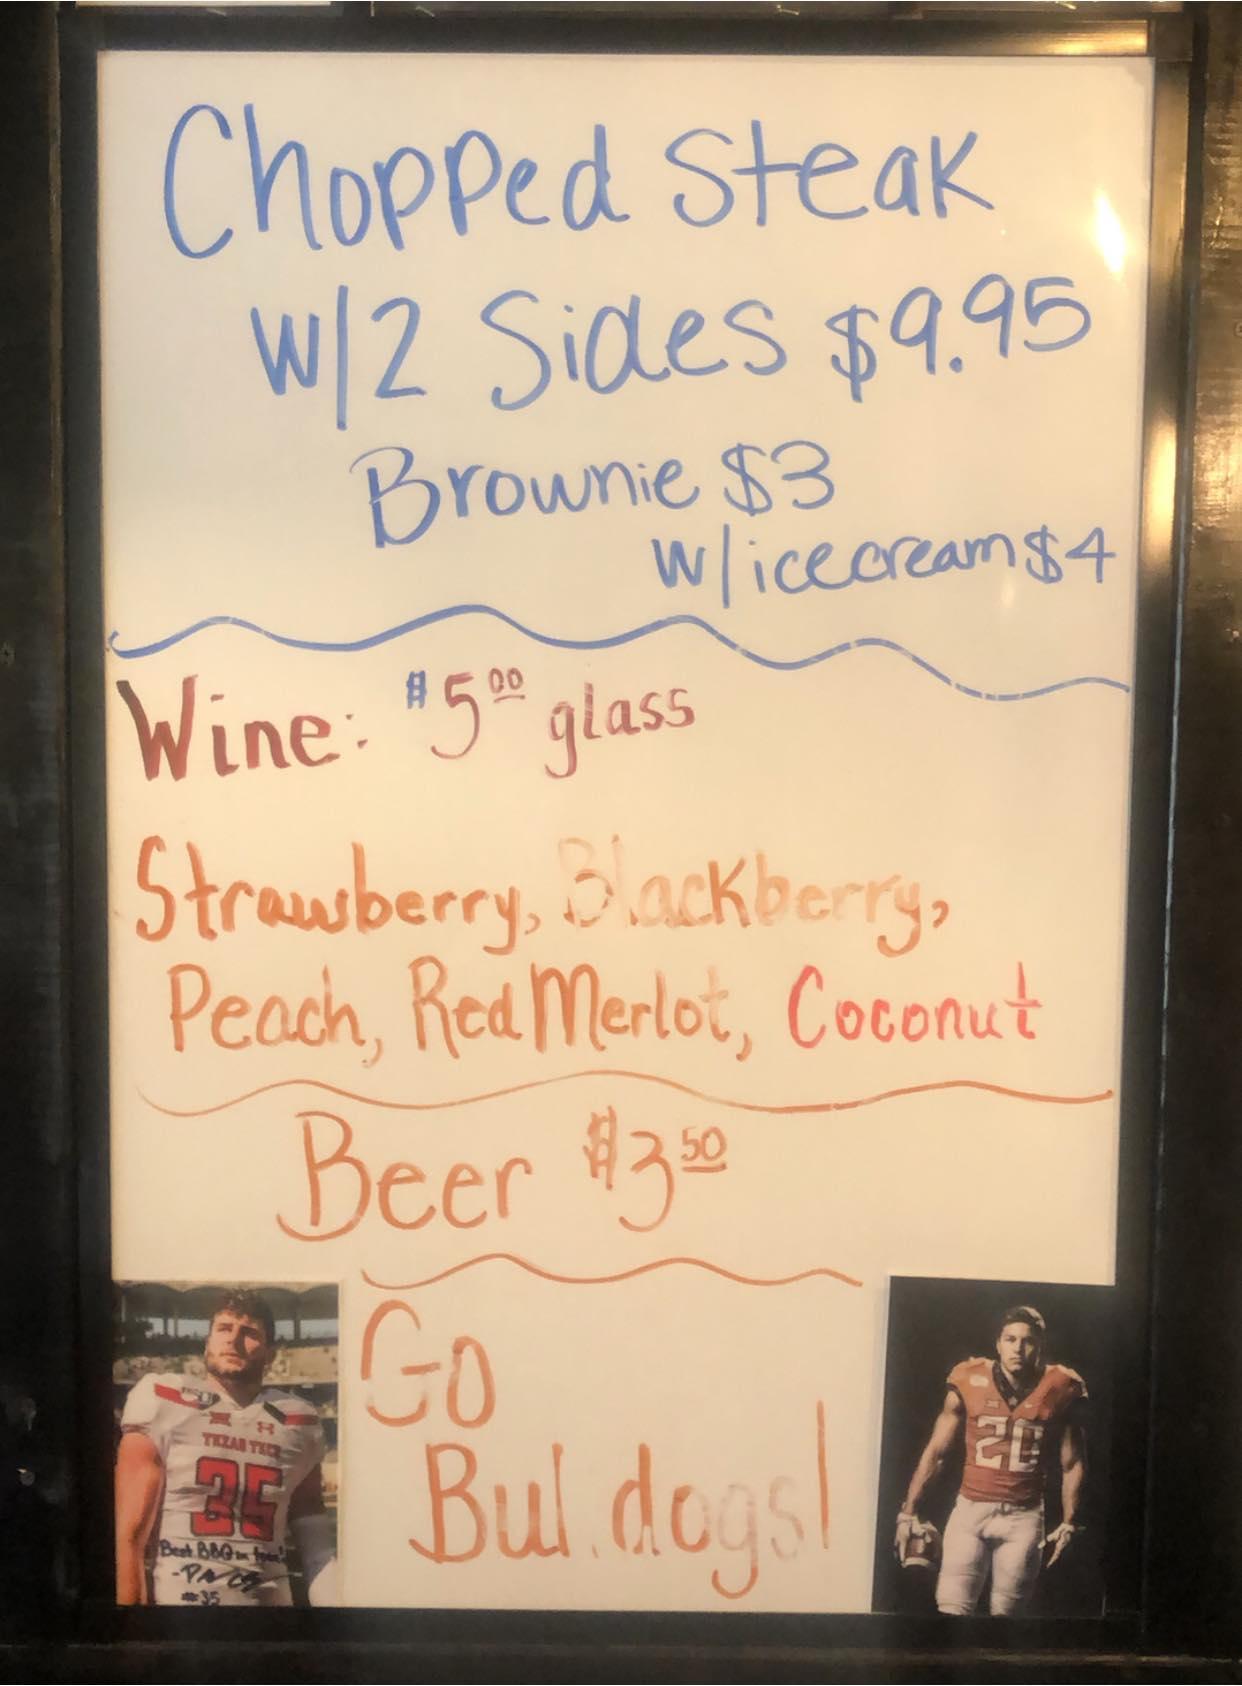 Chopped Steak
w/2 Sides $9.95
Brownie $3
w/icecream $4
Wine: $5.00 glass
Strawberry, Blackberry,
Peach, Red Merlot, Coconut
Beer $3.50
Go
Bulldogs!
TEXAS TECH
35
Best BBQ in town!
#35
20